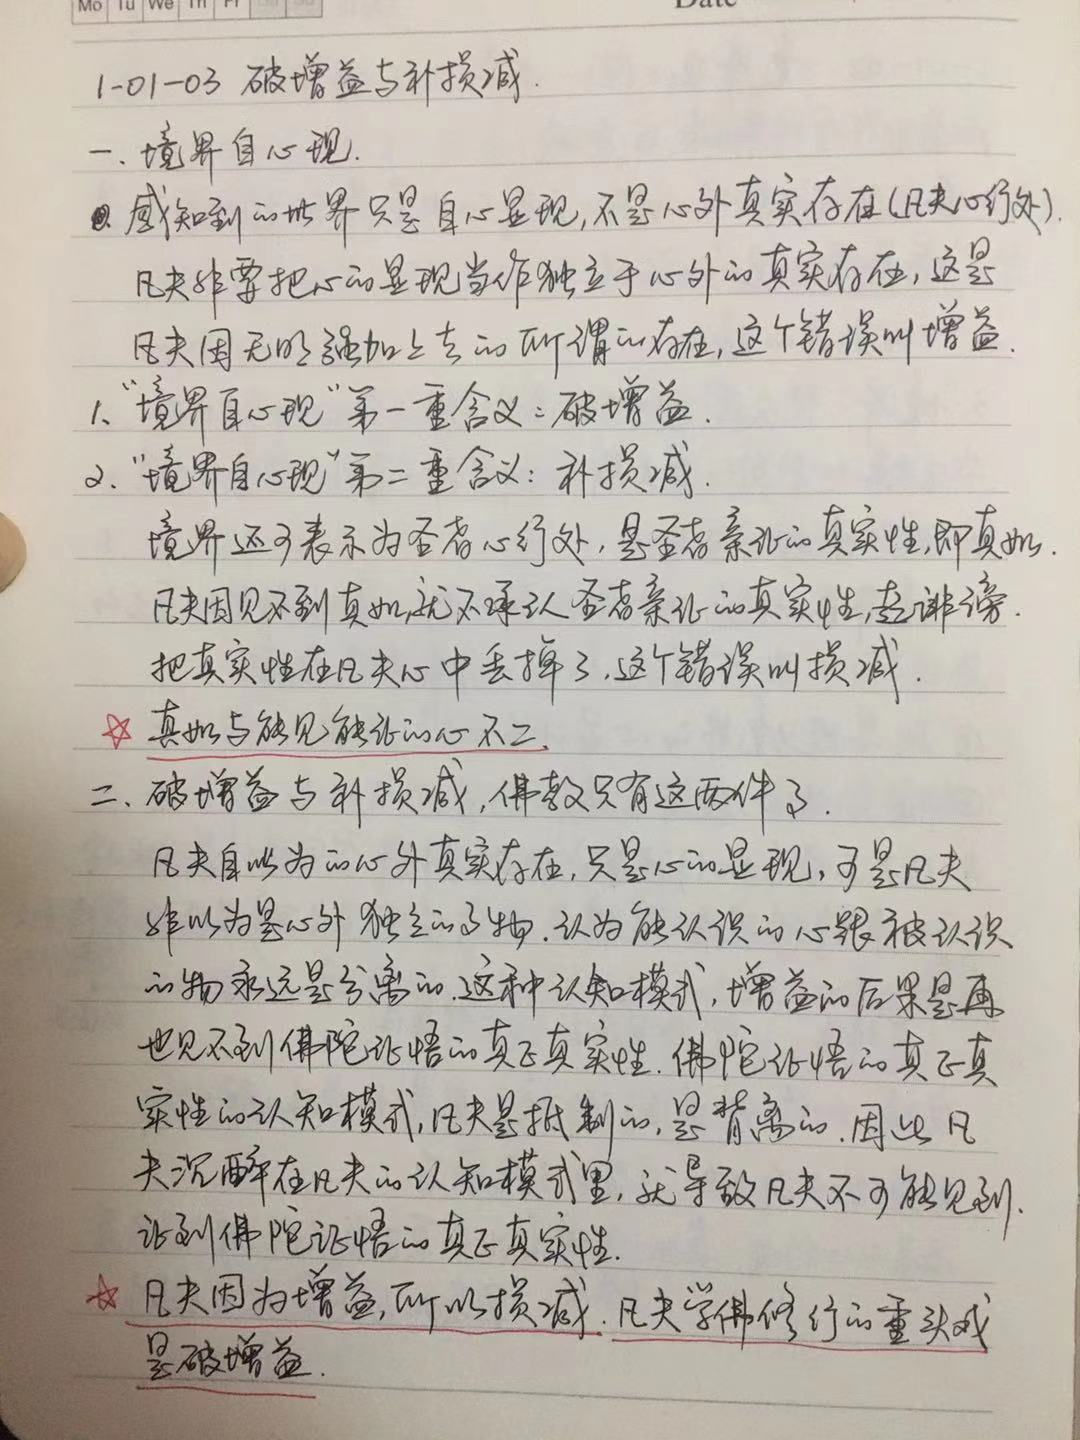 Mo Tu We Th Fr Sa Su
Date
1-01-03 破增益与补损减.
一、境界自心现.
感知到的世界只是自心显现,不是心外真实存在(凡夫心行处).
凡夫非要把心的显现当作独立于心外的真实存在,这是
凡夫因无明强加上去的所谓的存在,这个错误叫增益.
1、“境界自心现”第一重含义:破增益.
2、“境界自心现”第二重含义:补损减.
境界还可表示为圣者心行处,是圣者亲证的真实性,即真如.
凡夫因见不到真如,就不承认圣者亲证的真实性,起诽谤.
把真实性在凡夫心中丢掉了,这个错误叫损减.
☆ 真如与能见能证的心不二.
二、破增益与补损减,佛教只有这两件事.
凡夫自以为的心外真实存在,只是心的显现,可是凡夫
非以为是心外独立的事物.认为能认识的心跟被认识
的物永远是分离的.这种认知模式,增益的后果是再
也见不到佛陀证悟的真正真实性.佛陀证悟的真正真
实性的认知模式,凡夫是抵制的,是背离的.因此凡
夫沉醉在凡夫的认知模式里,就导致凡夫不可能见到、
证到佛陀证悟的真正真实性.
☆ 凡夫因为增益,所以损减.凡夫学佛修行的重头戏
是破增益.